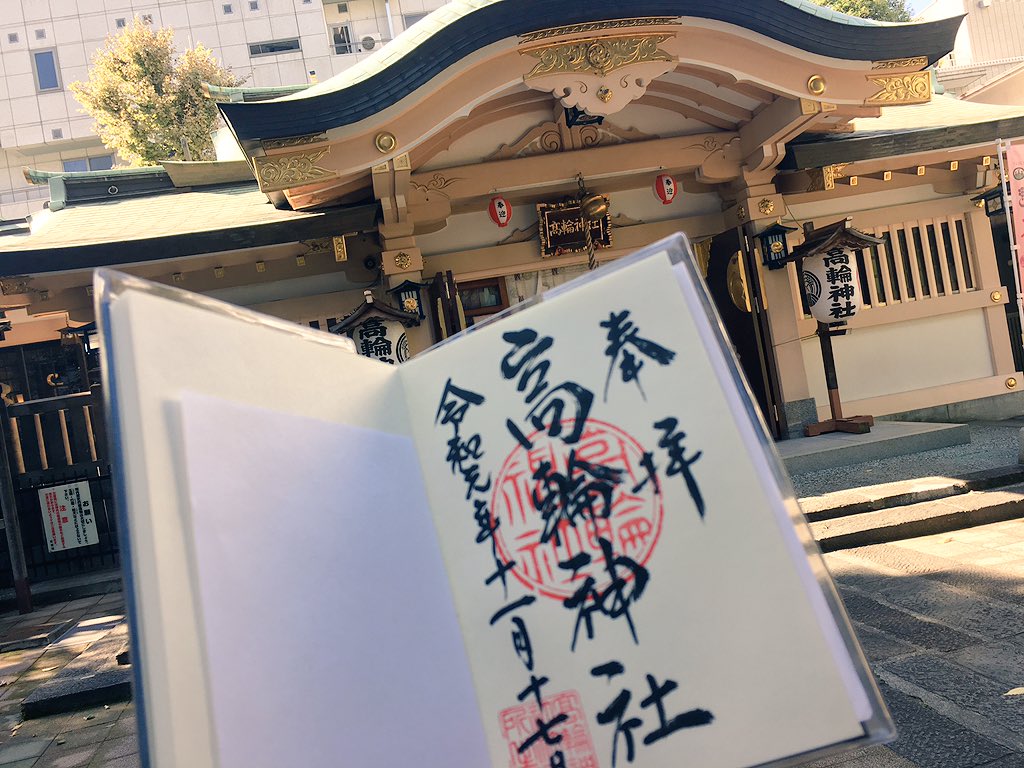 奉拝
高輪神社
令和元年十一月十七日
高輪神社
奉迎
奉迎
高輪神社
高輪
お願い
注意